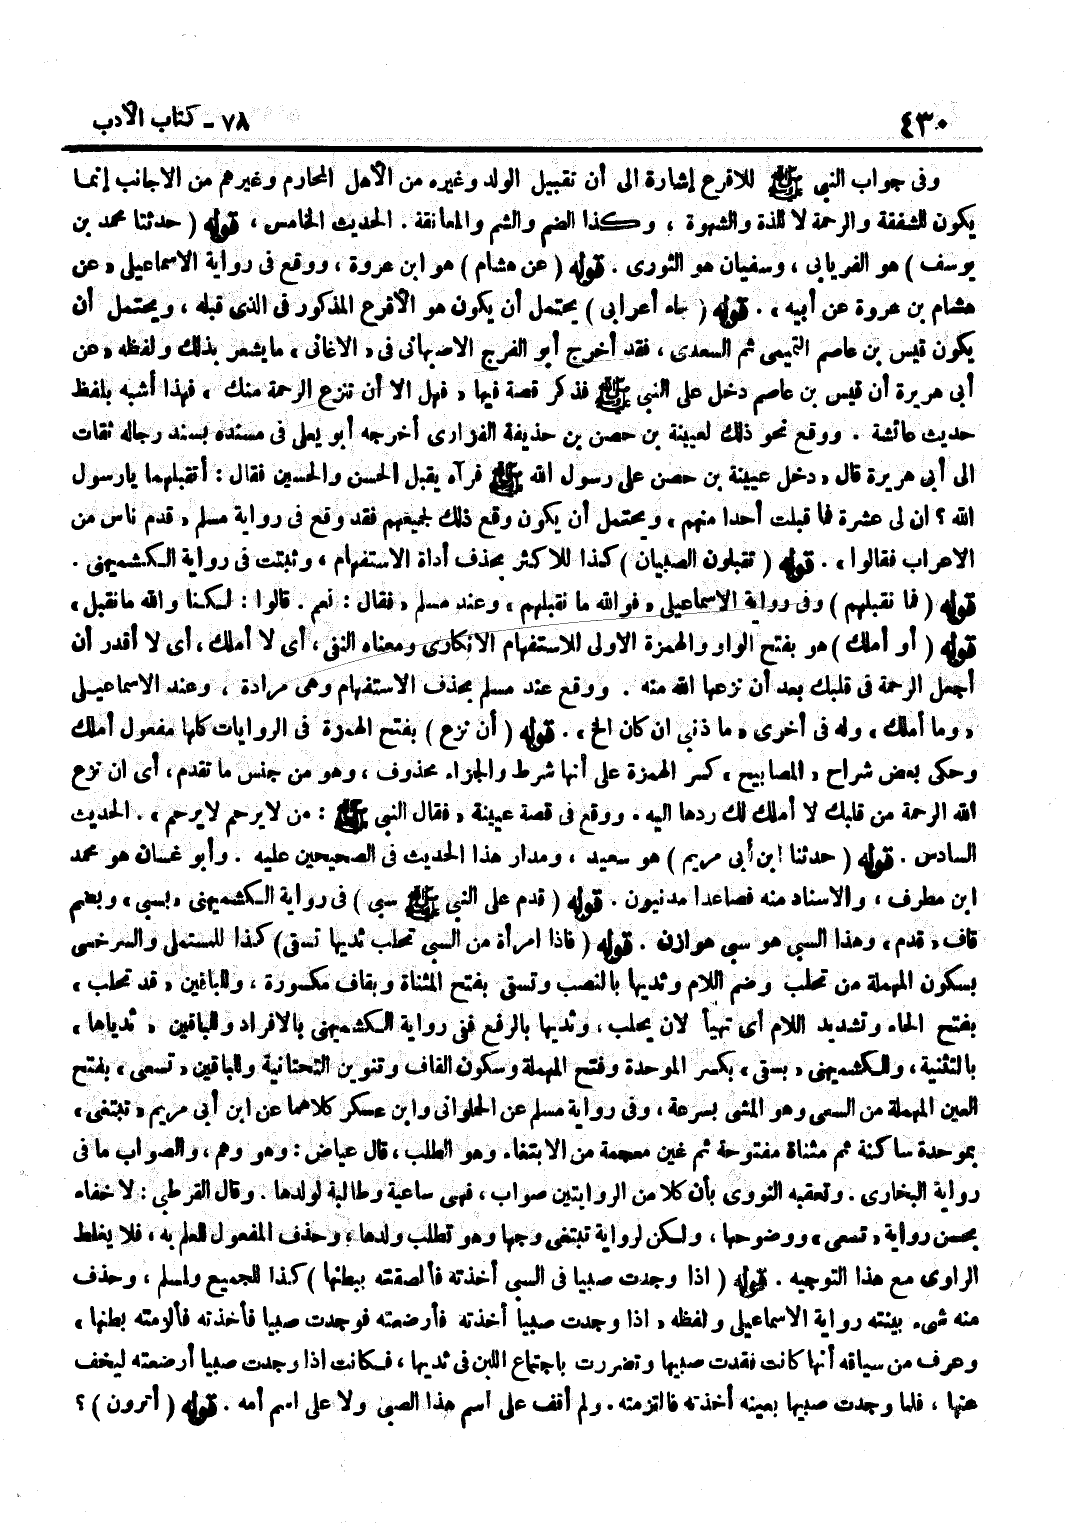 ٤٣٠
٧٨ - كتاب الأدب
وفى جواب النبى ﷺ للاقرع إشارة الى أن تقبيل الولد وغيره من الأهل المحارم وغيرهم من الاجانب إنما
يكون للشفقة والرحمة لا للذة والشهوة ، وكذا الضم والشم والمعانقة . الحديث الخامس ، قوله ( حدثنا محمد بن
يوسف ) هو الفريابى ، وسفيان هو الثورى . قوله ( عن هشام ) هو ابن عروة ، ووقع فى رواية الاسماعيلى « عن
هشام بن عروة عن أبيه » . قوله ( جاء أعرابى ) يحتمل أن يكون هو الأقرع المذكور فى الذى قبله ، ويحتمل أن
يكون قيس بن عاصم التميمى ثم السعدى ، فقد أخرج أبو الفرج الاصبهانى فى « الاغانى » ما يشعر بذلك ولفظه « عن
أبى هريرة أن قيس بن عاصم دخل على النبى ﷺ فذكر قصة فيها « فهل الا أن تنزع الرحمة منك » فهذا أشبه بلفظ
حديث عائشة . ووقع نحو ذلك لعيينة بن حصن بن حذيفة الفزارى أخرجه أبو يعلى فى مسنده بسند رجاله ثقات
الى أبى هريرة قال « دخل عيينة بن حصن على رسول الله ﷺ فرآه يقبل الحسن والحسين فقال : أتقبلهما يارسول
الله ؟ ان لى عشرة فما قبلت أحدا منهم » ويحتمل أن يكون وقع ذلك لجميعهم فقد وقع فى رواية مسلم « قدم ناس من
الاعراب فقالوا » . قوله ( تقبلون الصبيان ) كذا للاكثر بحذف أداة الاستفهام ، وثبتت فى رواية الكشميهنى .
قوله ( فما نقبلهم ) وفى رواية الاسماعيلى « فوالله ما نقبلهم » وعند مسلم « فقال : نعم . قالوا : لكنا والله مانقبل »
قوله ( أو أملك ) هو بفتح الواو والهمزة الاولى للاستفهام الانكارى ومعناه النفى ، أى لا أملك ، أى لا أقدر أن
أجعل الرحمة فى قلبك بعد أن نزعها الله منه . ووقع عند مسلم بحذف الاستفهام وهى مرادة ، وعند الاسماعيلى
« وما أملك » وله فى أخرى « ما ذنبى ان كان الخ » . قوله ( أن نزع ) بفتح الهمزة فى الروايات كلها مفعول أملك
وحكى بعض شراح « المصابيح » كسر الهمزة على أنها شرط والجزاء محذوف ، وهو من جنس ما تقدم ، أى ان نزع
الله الرحمة من قلبك لا أملك لك ردها اليه . ووقع فى قصة عيينة « فقال النبى ﷺ : من لايرحم لايرحم » . الحديث
السادس . قوله ( حدثنا ابن أبى مريم ) هو سعيد ، ومدار هذا الحديث فى الصحيحين عليه . وأبو غسان هو محمد
ابن مطرف ، والاسناد منه فصاعدا مدنيون . قوله ( قدم على النبى ﷺ سبى ) فى رواية الكشميهنى « بسبى » وبضم
قاف « قدم » وهذا السبى هو سبى هوازن . قوله ( فاذا امرأة من السبى تحلب ثديها تسقى ) كذا للمستملى والسرخسى
بسكون المهملة من تحلب وضم اللام وثديها بالنصب وتسقى بفتح المثناة وبقاف مكسورة ، وللباقين « قد تحلب »
بفتح الحاء وتشديد اللام أى تهيأ لان يحلب ، وثديها بالرفع ففى رواية الكشميهنى بالافراد وللباقين « ثدياها »
بالتثنية ، وللكشميهنى « بسقى » بكسر الموحدة وفتح المهملة وسكون القاف وتنوين التحتانية وللباقين « تسعى » بفتح
العين المهملة من السعى وهو المشى بسرعة ، وفى رواية مسلم عن الحلوانى وابن عسكر كلاهما عن ابن أبى مريم « تبتغى »
بموحدة ساكنة ثم مثناة مفتوحة ثم غين معجمة من الابتغاء وهو الطلب ، قال عياض : وهو وهم ، والصواب ما فى
رواية البخارى . وتعقبه النووى بأن كلا من الروايتين صواب ، فهى ساعية وطالبة لولدها . وقال القرطبى : لا خفاء
بحسن رواية « تسعى » ووضوحها ، ولكن لرواية تبتغى وجها وهو تطلب ولدها ، وحذف المفعول للعلم به ، فلا يغلط
الراوى مع هذا التوجيه . قوله ( اذا وجدت صبيا فى السبى أخذته فألصقته ببطنها ) كذا للجميع ولمسلم ، وحذف
منه شىء بينته رواية الاسماعيلى ولفظه « اذا وجدت صبيا أخذته فأرضعته فوجدت صبيا فأخذته فألزمته بطنها »
وعرف من سياقه أنها كانت فقدت صبيها وتضررت باجتماع اللبن فى ثديها ، فكانت اذا وجدت صبيا أرضعته ليخف
عنها ، فلما وجدت صبيها بعينه أخذته فالتزمته . ولم أقف على اسم هذا الصبى ولا على اسم أمه . قوله ( أترون ) ؟